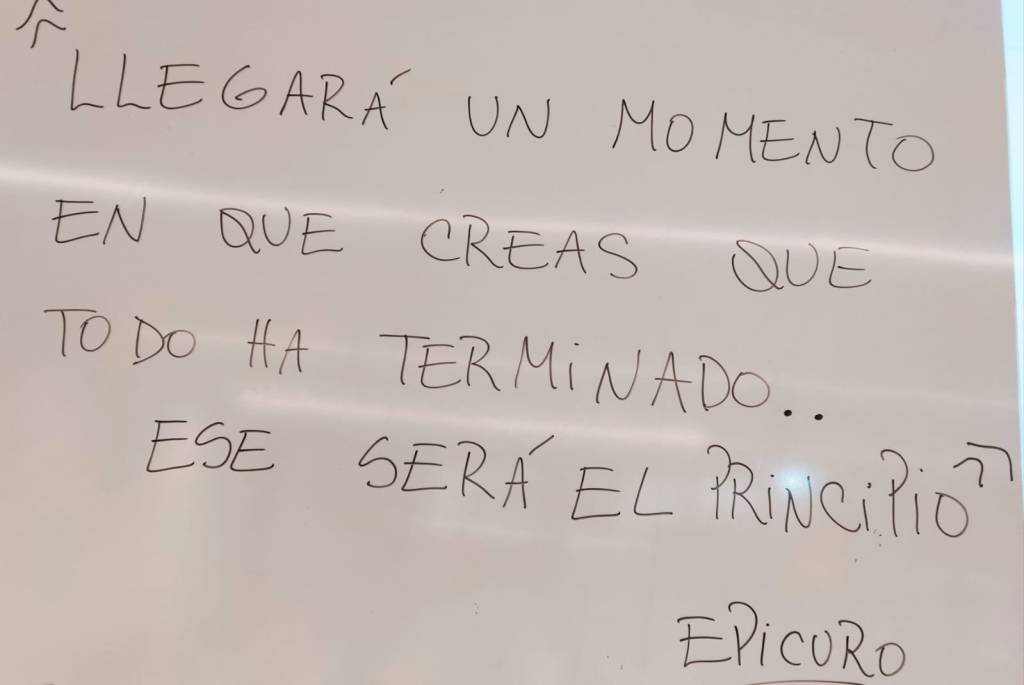 “LLEGARÁ UN MOMENTO
EN QUE CREAS QUE
TODO HA TERMINADO..
ESE SERÁ EL PRINCIPIO”
EPICURO